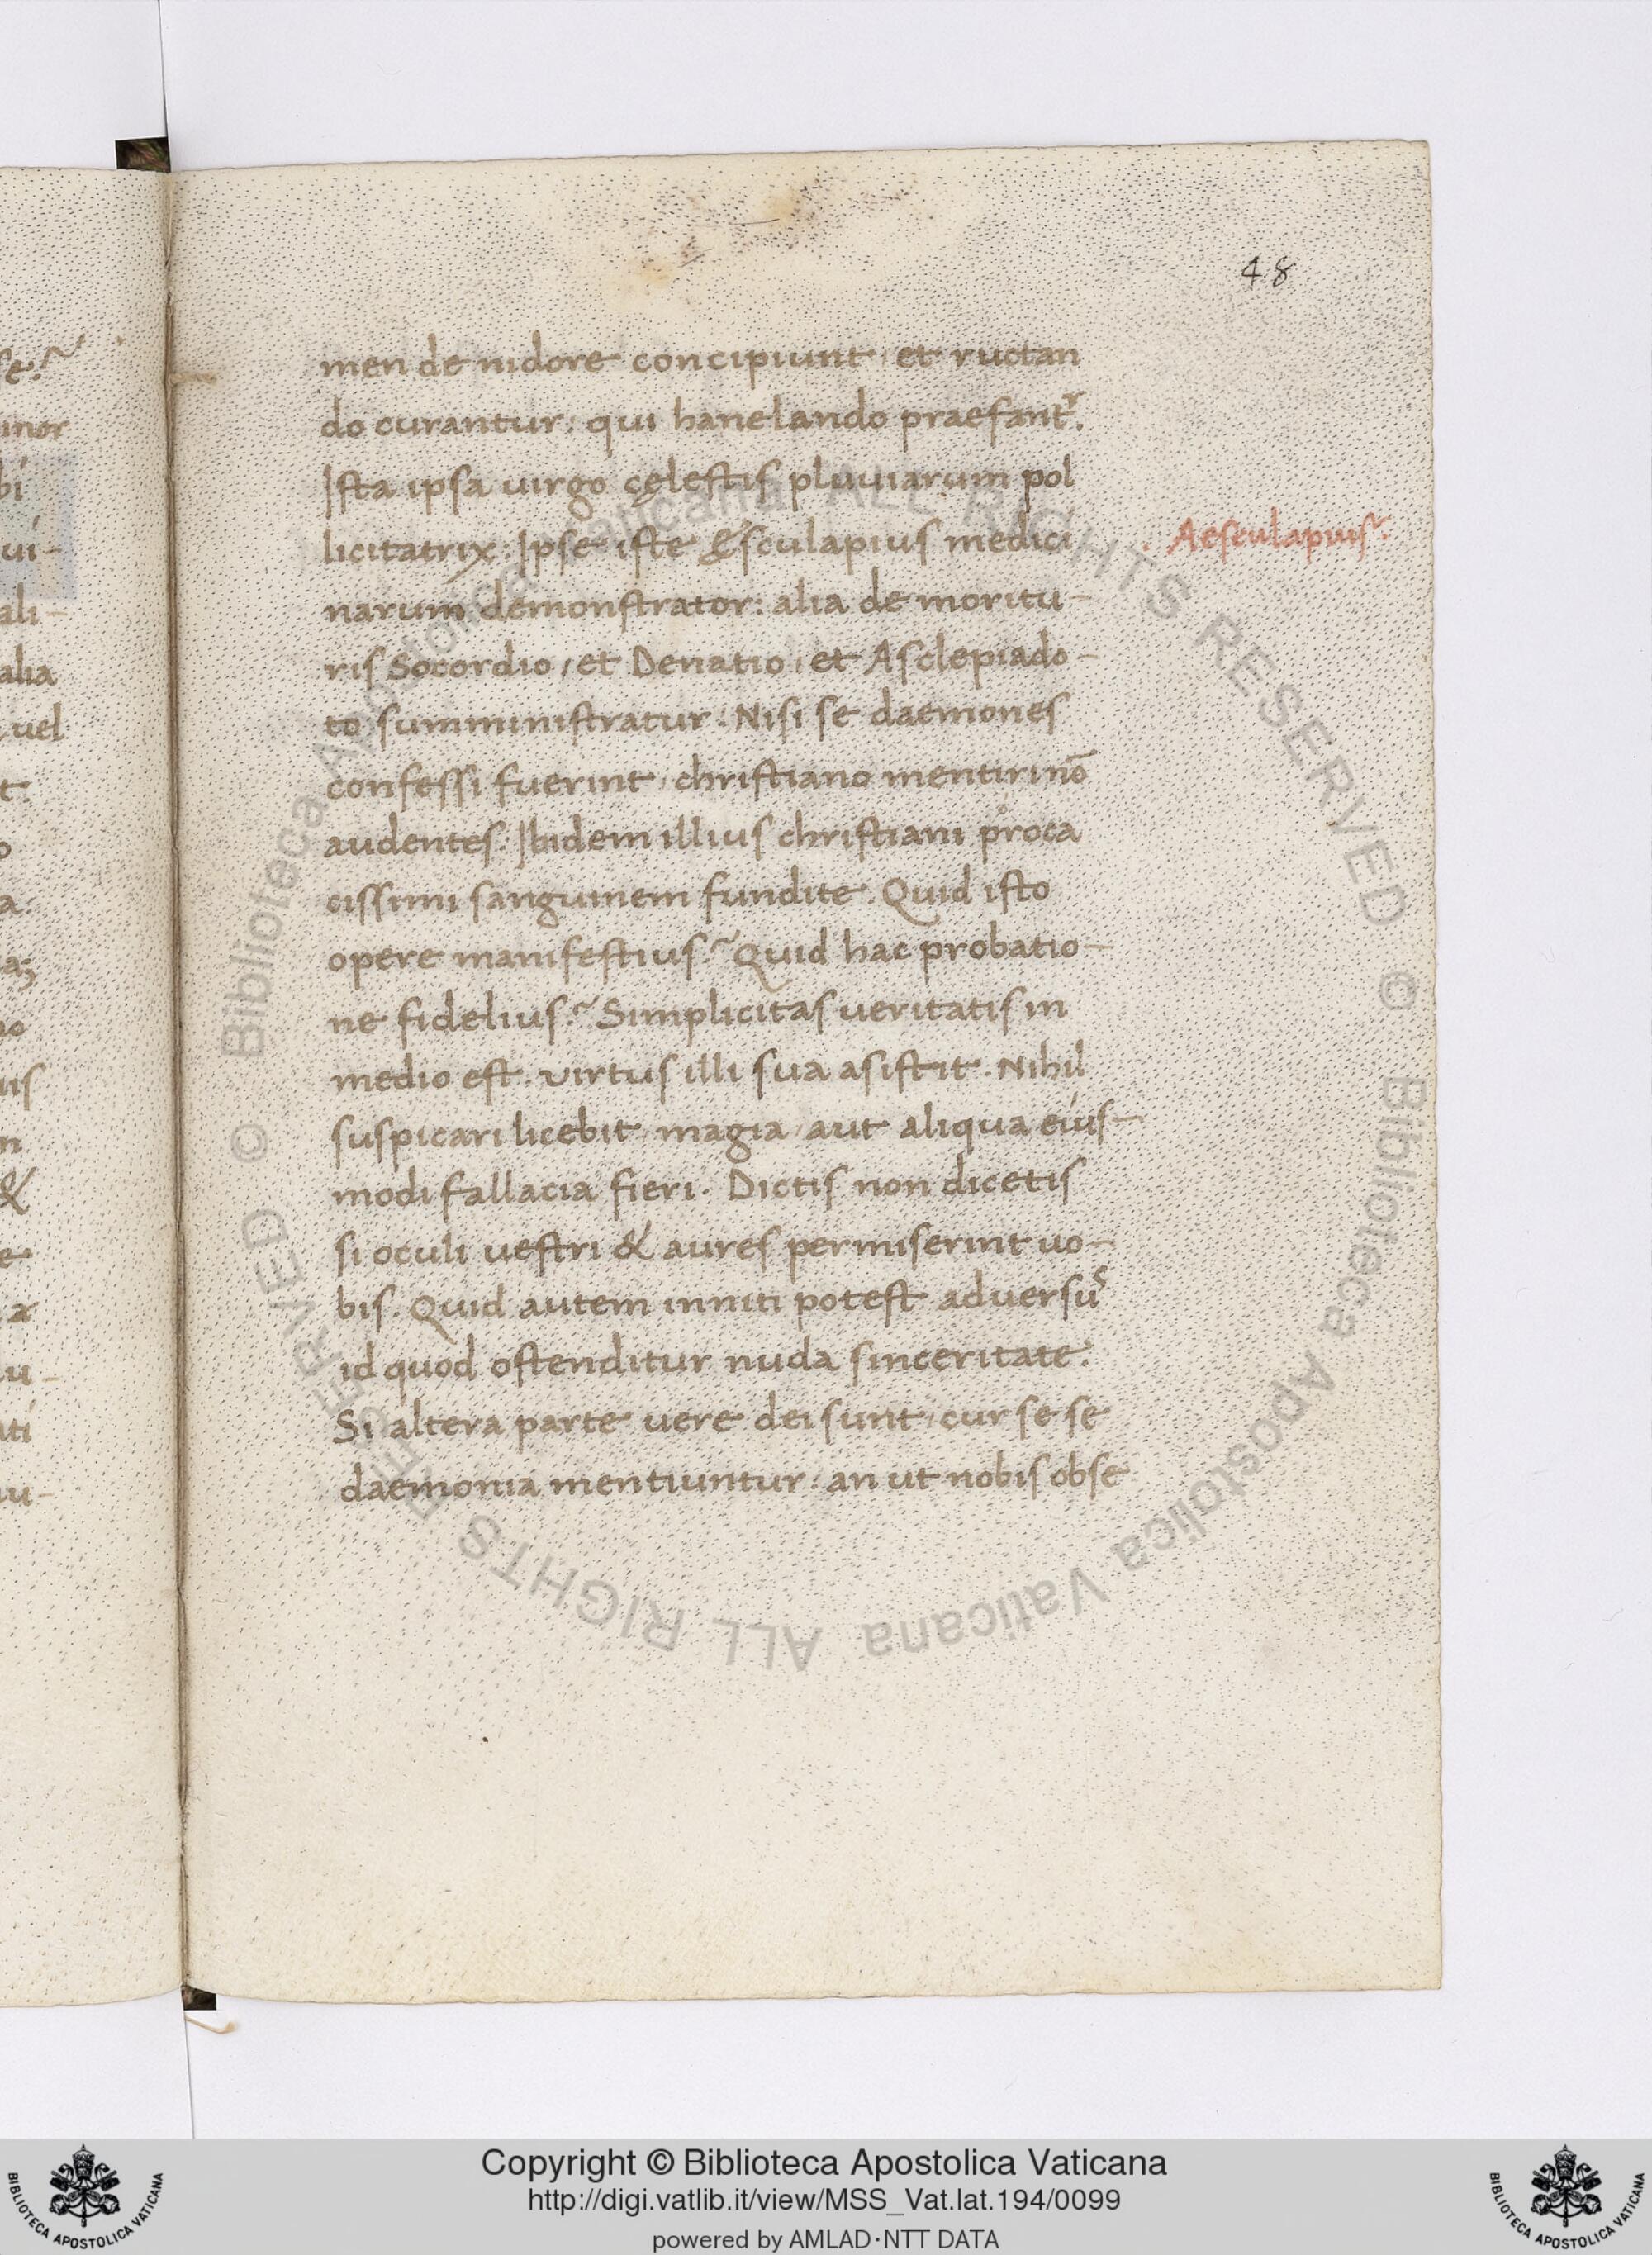 48
men de nidore concipiunt, et ructan
do curantur: qui hanelando praefantʳ.
Ista ipsa uirgo cęlestis pluuiarum pol
licitatrix: Ipse iste Ęsculapius medici
. Aesculapius.
narum demonstrator: alia de moritu-
ris Socordio, et Denatio, et Asclepiado-
to sumministratur. Nisi se daemones
confessi fuerint, christiano mentiri nō
audentes. Ibidem illius christiani proca
cissimi sanguinem fundite. Quid isto
opere manifestius? Quid hac probatio-
ne fidelius? Simplicitas ueritatis in
medio est. virtus illi sua asistit. Nihil
suspicari licebit, magia, aut aliqua eius-
modi fallacia fieri. Dictis non dicetis
si oculi uestri & aures permiserint uo-
bis. Quid autem inniti potest aduersuˢ
id quod ostenditur nuda sinceritate.
Si altera parte uere dei sunt, cur se se
daemonia mentiuntur: an ut nobis obse
se?
inor
bi
ui-
ali-
alia
uel
t.
o
a.
no
uis
n
&
e
a
u-
ati
u-
© Biblioteca Apostolica Vaticana ALL RIGHTS RESERVED © Biblioteca Apostolica Vaticana ALL RIGHTS RESERVED
BIBLIOTECA APOSTOLICA VATICANA
Copyright © Biblioteca Apostolica Vaticana
http://digi.vatlib.it/view/MSS_Vat.lat.194/0099
powered by AMLAD·NTT DATA
BIBLIOTECA APOSTOLICA VATICANA